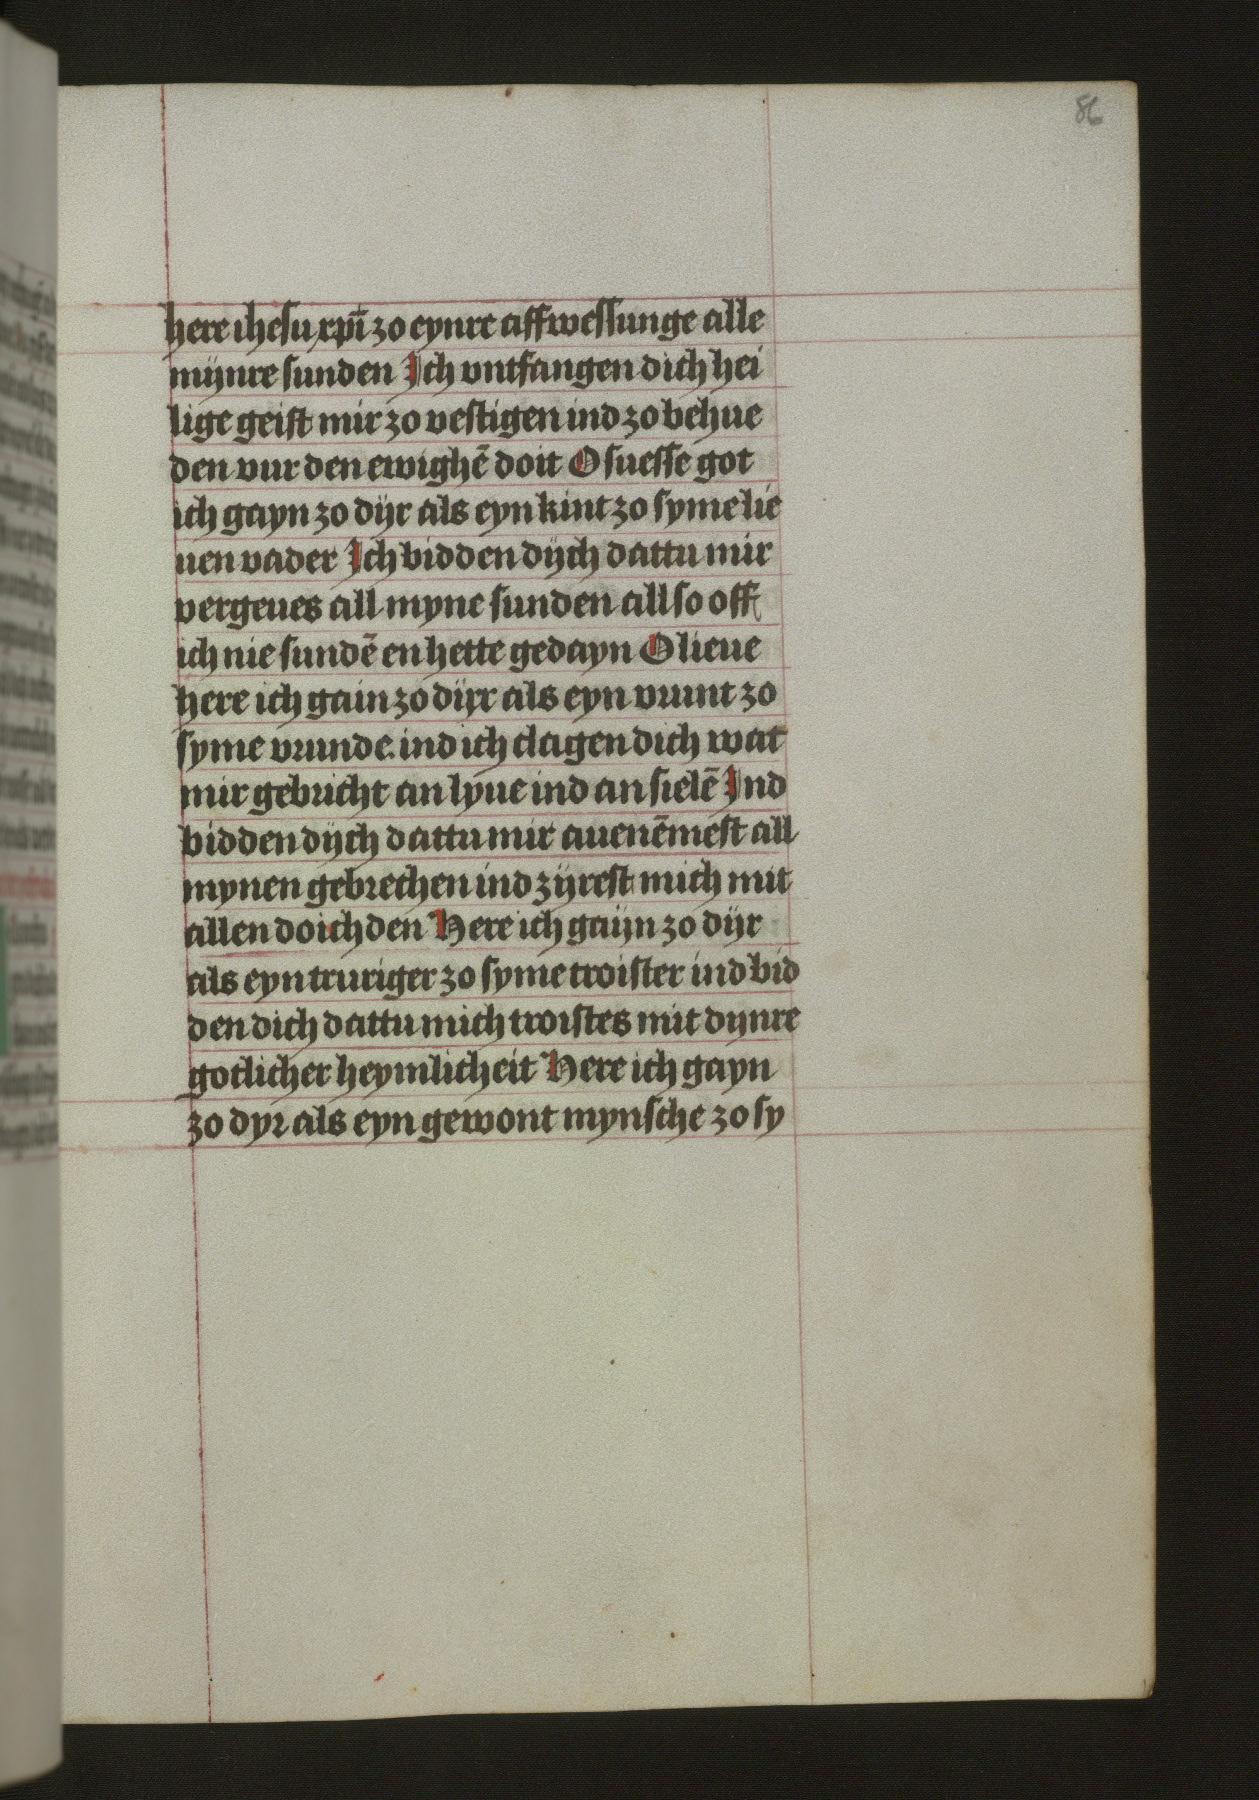 86
here ihesu xpi̅ zo eynre affwessunge alle
mÿnre sunden Ich vntfangen dich hei
lige geist mir zo vestigen ind zo behue
den vur den ewighē doit O suesse got
ich gayn zo dÿr als eyn kint zo syme lie
uen vader Ich bidden dÿch dattu mir
vergeues all myne sunden all so off
ich nie sundē en hette gedayn O lieue
here ich gain zo dÿr als eyn vruint zo
syme vrunde ind ich clagen dich wat
mir gebricht an lyue ind an sielē Ind
bidden dÿch dattu mir auenēmest all
mynen gebrechen ind zÿrest mich mit
allen doichden Here ich gaÿn zo dÿr
als eyn truriger zo syme troister ind bid
den dich dattu mich troistes mit dynre
gotlicher heymlicheit Here ich gayn
zo dyr als eyn gewont mynsche zo sy